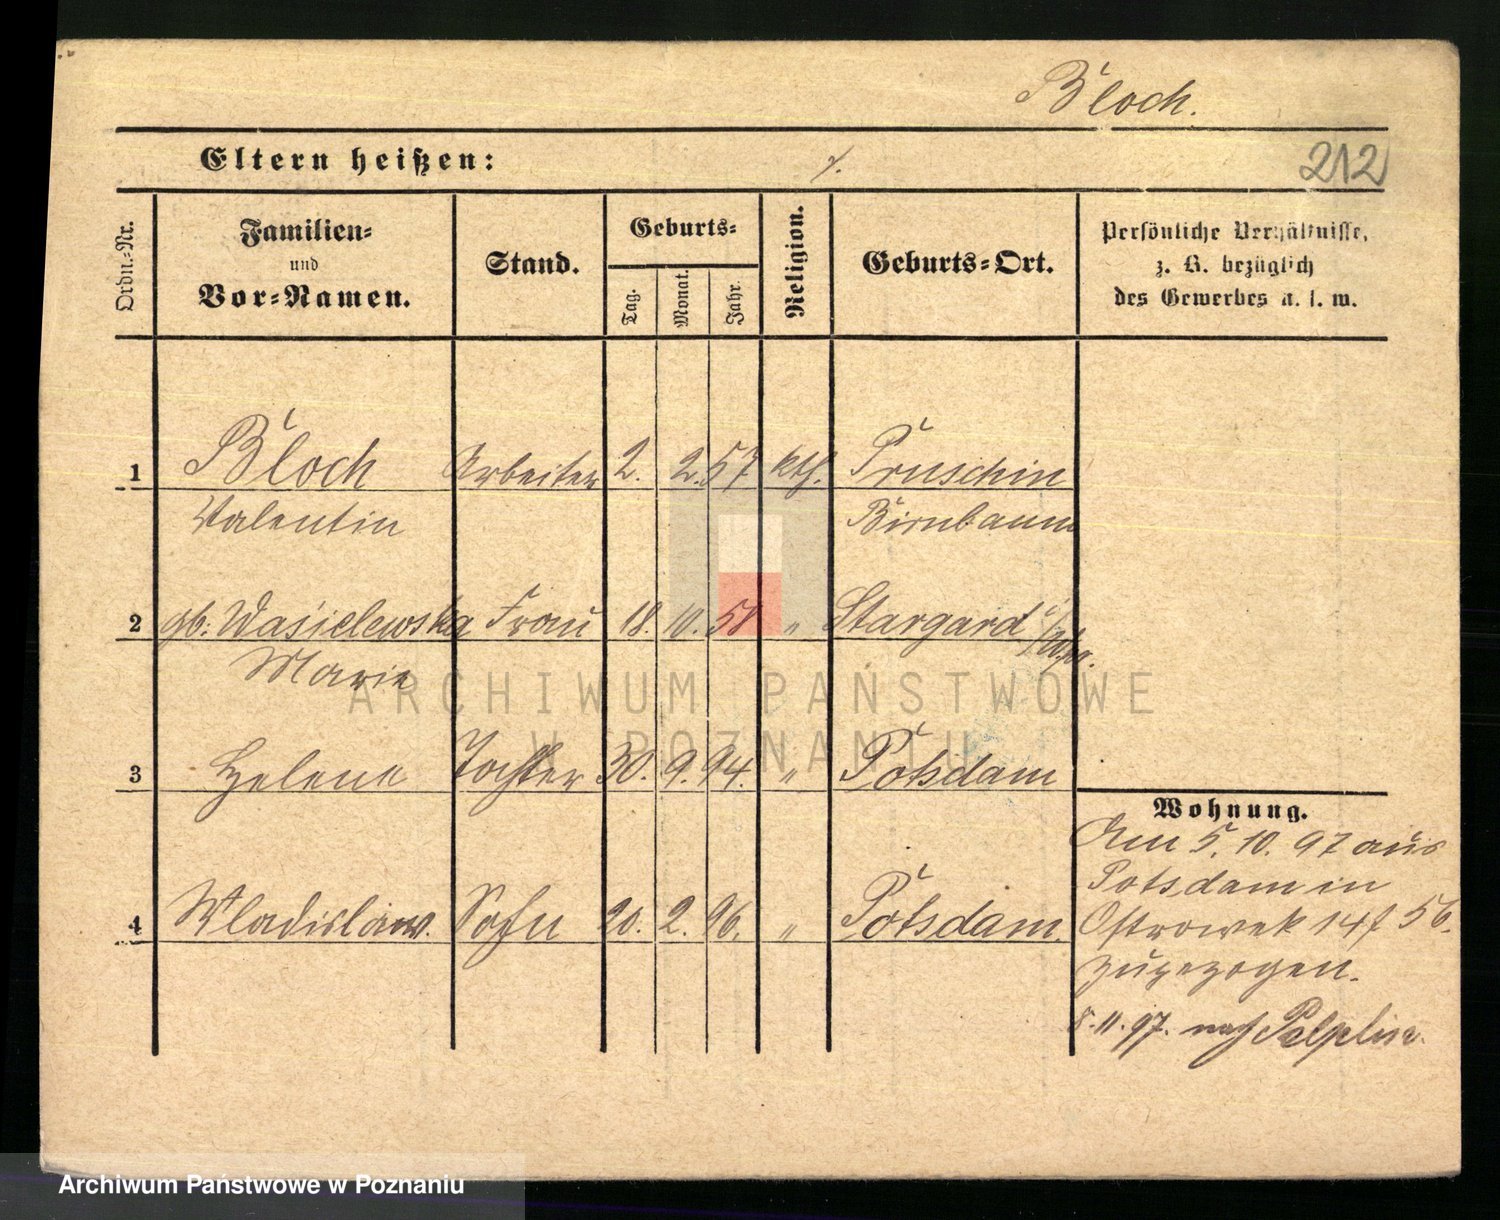 Bloch.
Eltern heißen: ⁒
212
Ordn.-Nr.
Familien-
und
Vor-Namen.
Stand.
Geburts-
Tag.
Monat.
Jahr.
Religion.
Geburts-Ort.
Persönliche Verhältnisse,
z. B. bezüglich
des Gewerbes u. s. w.
1 Bloch Arbeiter 2. 2. 57 kth. Pruschin
Valentin Birnbaum
2 gb: Wasielewska Frau 18. 10. 58 " Stargard
Marie
ARCHIWUM PAŃSTWOWE
W POZNANIU
3 Helene Tochter 30. 9. 94. " Potsdam
Wohnung.
Am 5. 10. 97 aus
Potsdam in
4 Wladislaw. Sohn 20. 2. 96. " Potsdam.
Ostrowek 14 56.
zugezogen.
8. 11. 97. nach Pelplin.
Archiwum Państwowe w Poznaniu